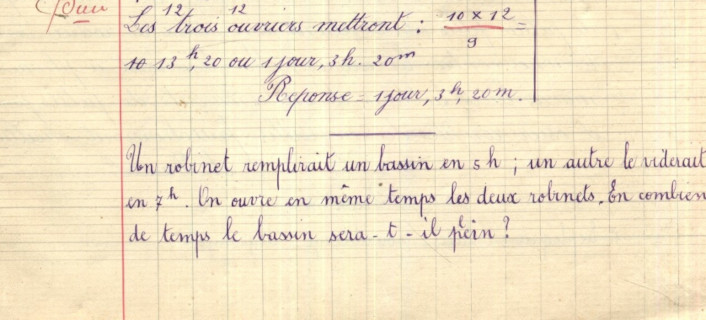 12 12
Les trois ouvriers mettront : 10 x 12 / 9 =
10 13 h, 20 ou 1 jour, 3 h. 20 m
Reponse = 1 jour, 3 h, 20 m.
Un robinet remplirait un bassin en 5 h ; un autre le viderait
en 7 h. On ouvre en même temps les deux robinets. En combien
de temps le bassin sera-t-il plein ?